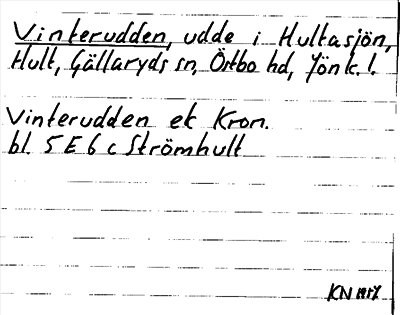 Vinterudden, udde i Hultasjön,
Hult, Gällaryds sn, Östbo hd, Jönk. l.
Vinterudden ek Kron.
bl. 5 E 6 c Strömhult
KN